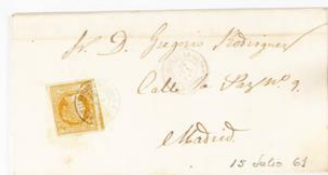 Sr. D. Gregorio Rodriguez
Calle la Paz nº 9.
Madrid
15 Julio 61